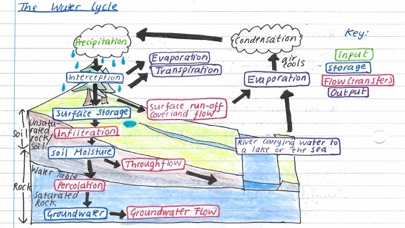 The Water Cycle
Precipitation
Condensation
Key:
Input
Storage
Flow (transfers)
Output
Evaporation
Transpiration
Interception
air
cools
Evaporation
Surface Storage
Surface run-off
(overland flow)
Unsatu-
rated rock/
Soil
Soil
Infiltration
River carrying water to
a lake or the sea
Soil Moisture
Throughflow
Water Table
Percolation
Rock
Saturated
Rock
Groundwater
Groundwater Flow